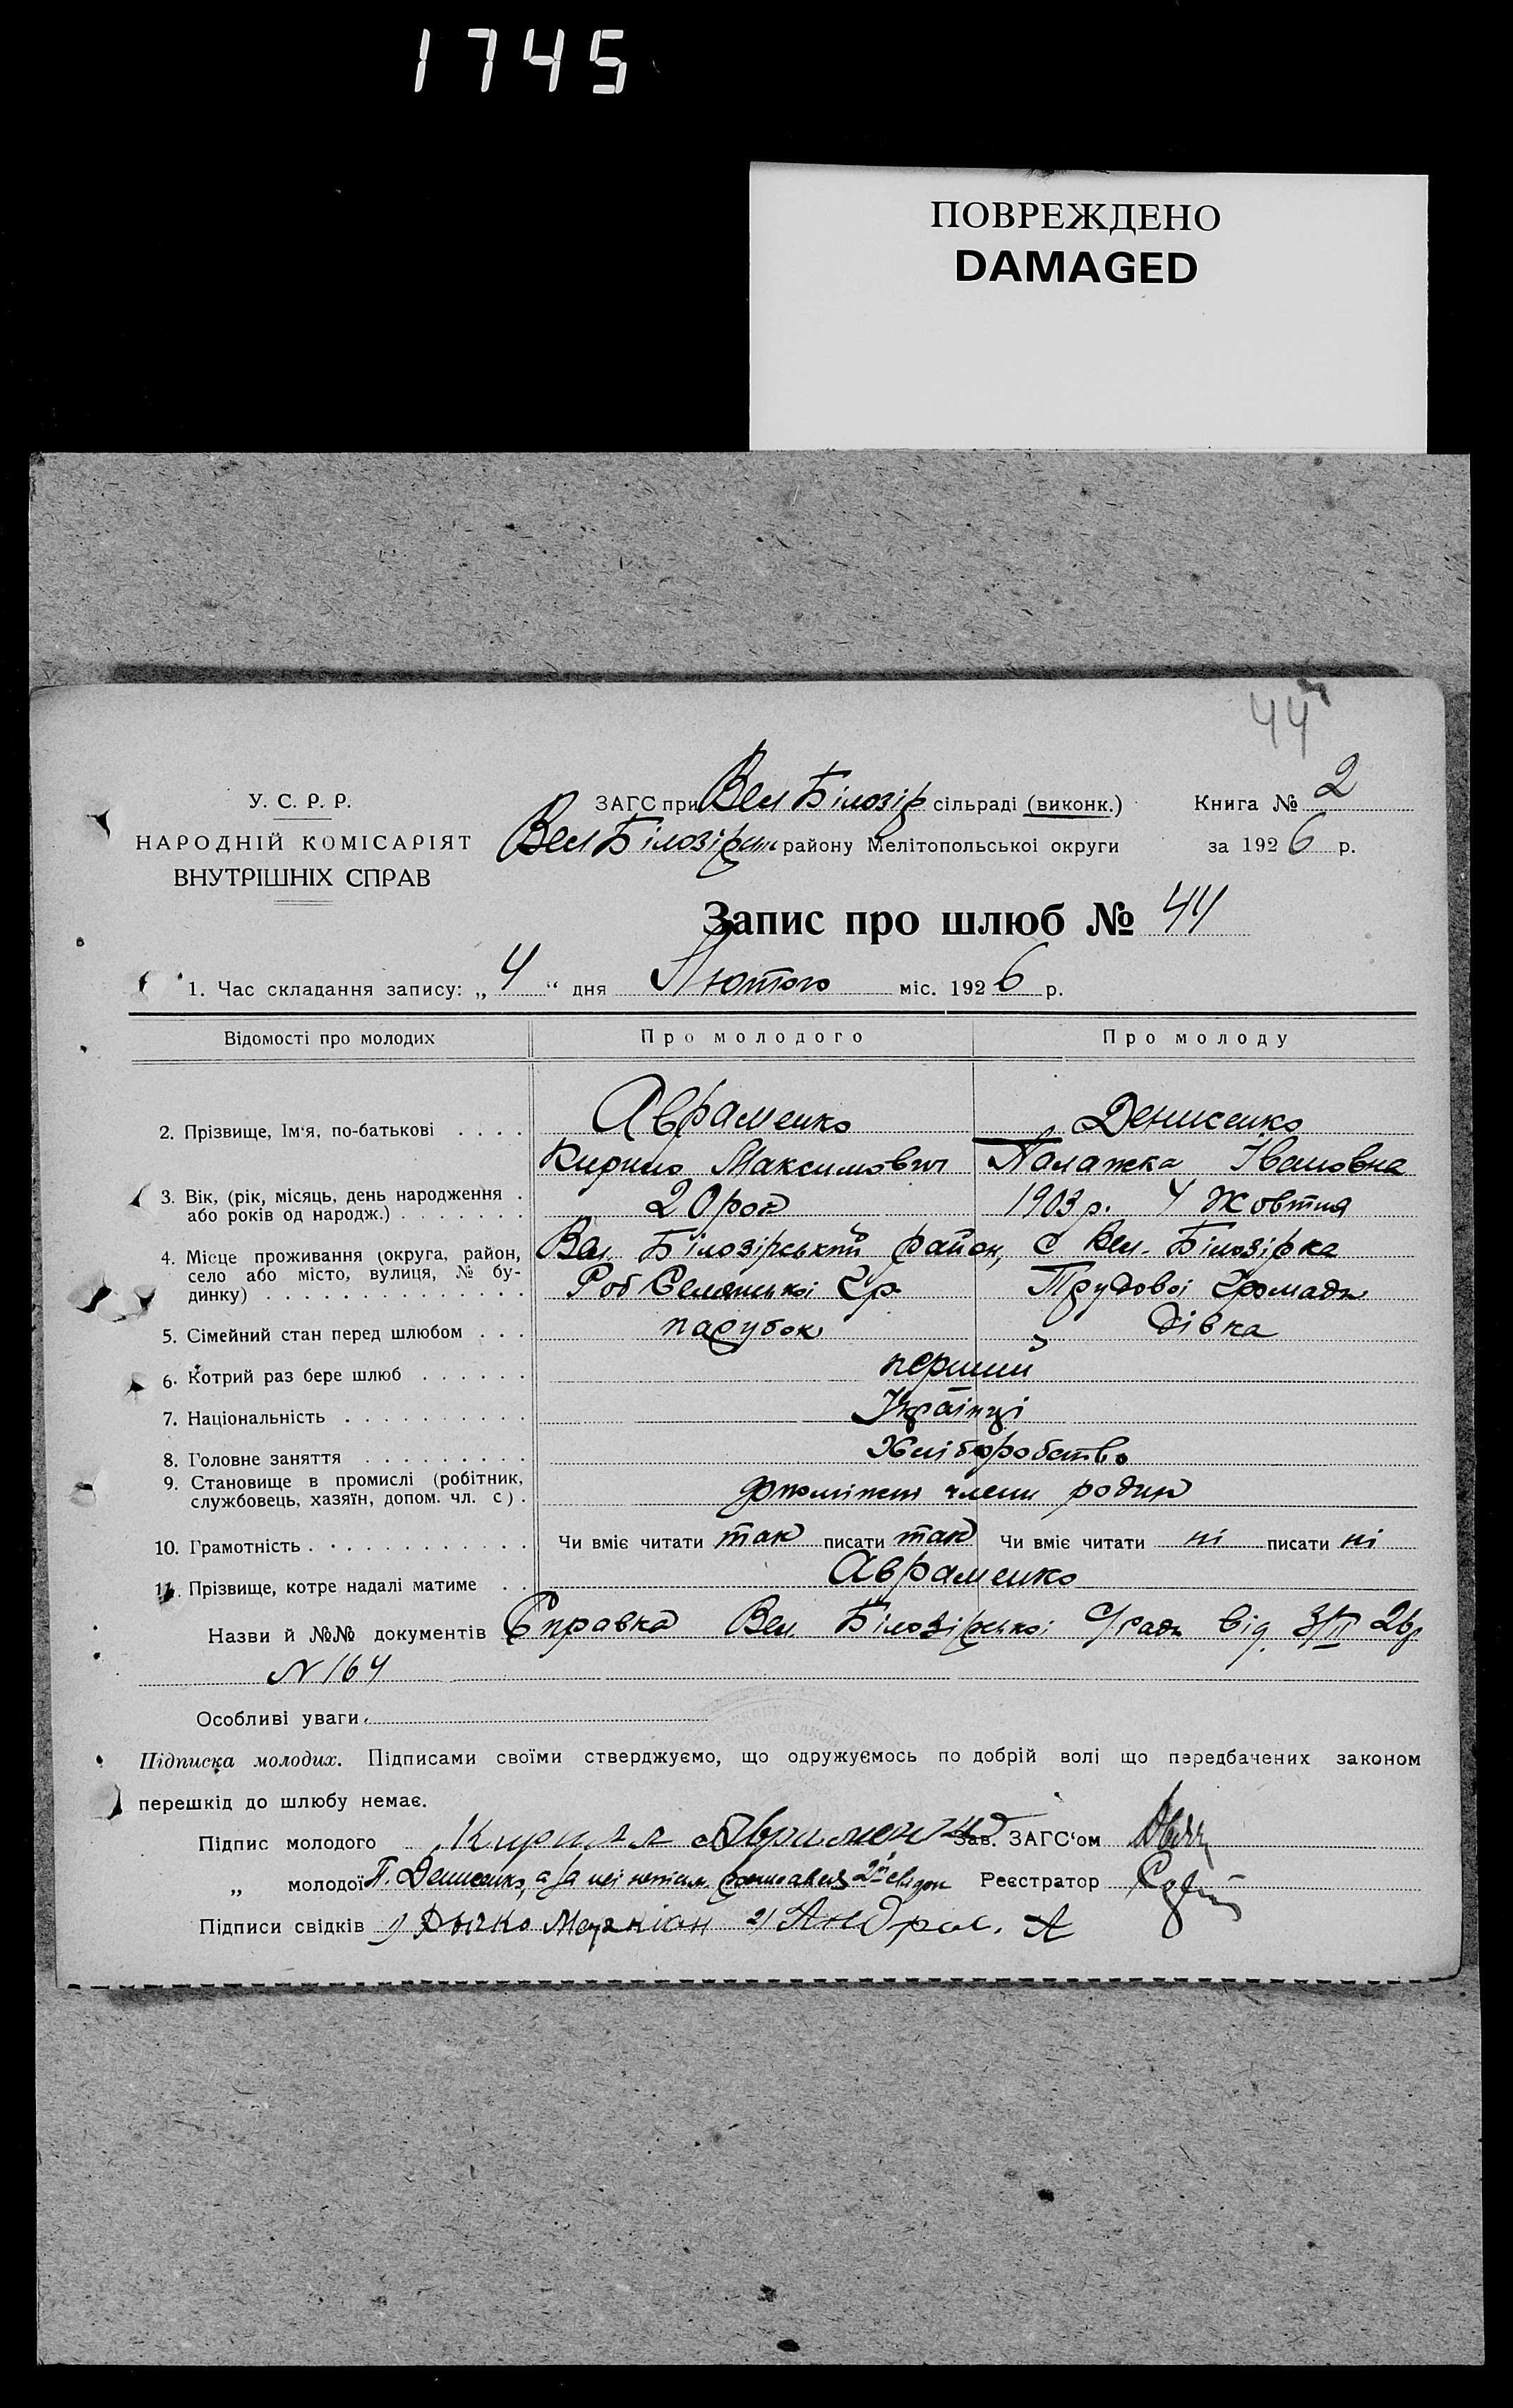 1745
ПОВРЕЖДЕНО
DAMAGED
44
У. С. Р. Р.
НАРОДНІЙ КОМІСАРІЯТ
ВНУТРІШНІХ СПРАВ
ЗАГС при Вел Білозір сільраді (виконк.)
Вел Білозірськ району Мелітопольської округи
Книга № 2
за 1926 р.
Запис про шлюб № 44
1. Час складання запису: „4“ дня Лютого міс. 1926 р.
Відомості про молодих Про молодого Про молоду
2. Прізвище, Ім'я, по-батькові . . . . Авраменко Денисенко
Кирило Максимович Палажка Івановна
3. Вік, (рік, місяць, день народження . 20 рок 1903 р. 4 Жовтня
або років од народж.) . . . . . . .
4. Місце проживання (округа, район, Вел. Білозірський район, с Вел. Білозірка
село або місто, вулиця, № бу-
динку) . . . . . . . . . . . . . . Роб Селянської Гр. Трудової Громади
5. Сімейний стан перед шлюбом . . . парубок дівка
6. Котрий раз бере шлюб . . . . . . перший
7. Національність . . . . . . . . . . Українці
8. Головне заняття . . . . . . . . . Хліборобство
9. Становище в промислі (робітник,
службовець, хазяїн, допом. чл. с) . члени родин
10. Грамотність . . . . . . . . . . . . Чи вміє читати так писати так Чи вміє читати ні писати ні
11. Прізвище, котре надалі матиме . . Авраменко
Назви й №№ документів Справка Вел. Білозірської С/ради від 3/II 26р
N 164
Особливі уваги.
Підписка молодих. Підписами своїми стверджуємо, що одружуємось по добрій волі що передбачених законом
перешкід до шлюбу немає.
Підпис молодого Кирилл Авраменко Зав. ЗАГС'ом
„ молодої П. Денисенко, а за неї розписався 2й свідок Реєстратор
Підписи свідків 1) 2) А